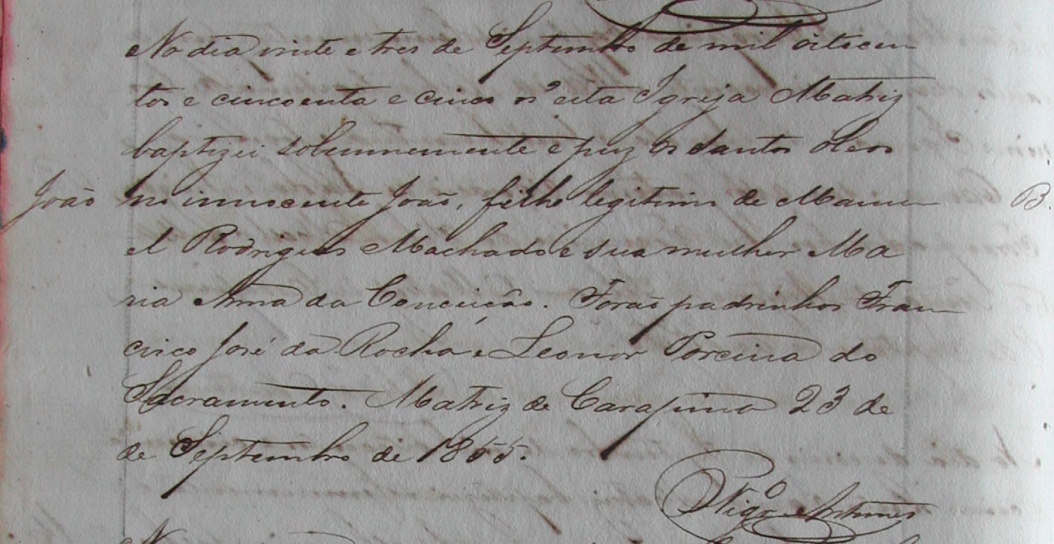 No dia vinte e tres de Septembro de mil oitocen
tos e cincoenta e cinco n'esta Igreja Matriz
baptizei solemnemente e puz os Santos Oleos
João no innocente João, filho legitimo de Manu
el Rodrigues Machado e sua mulher Ma
ria Anna da Conceição. Forão padrinhos Fran
cisco José da Rocha e Leonor Pereira do
Sacramento. Matriz de Carapina 23 de
de Septembro de 1855.
Vigº Antunes